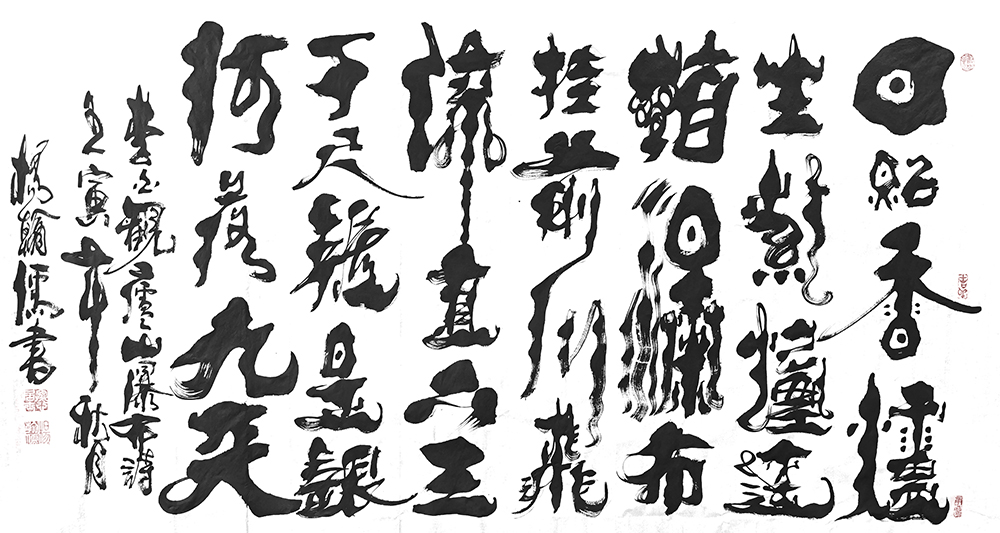 日照香爐
生紫煙遙
看瀑布
挂前川飛
流直下三
千尺疑是銀
河落九天
李白觀廬山瀑布詩
壬寅年秋月
楊翰儒書